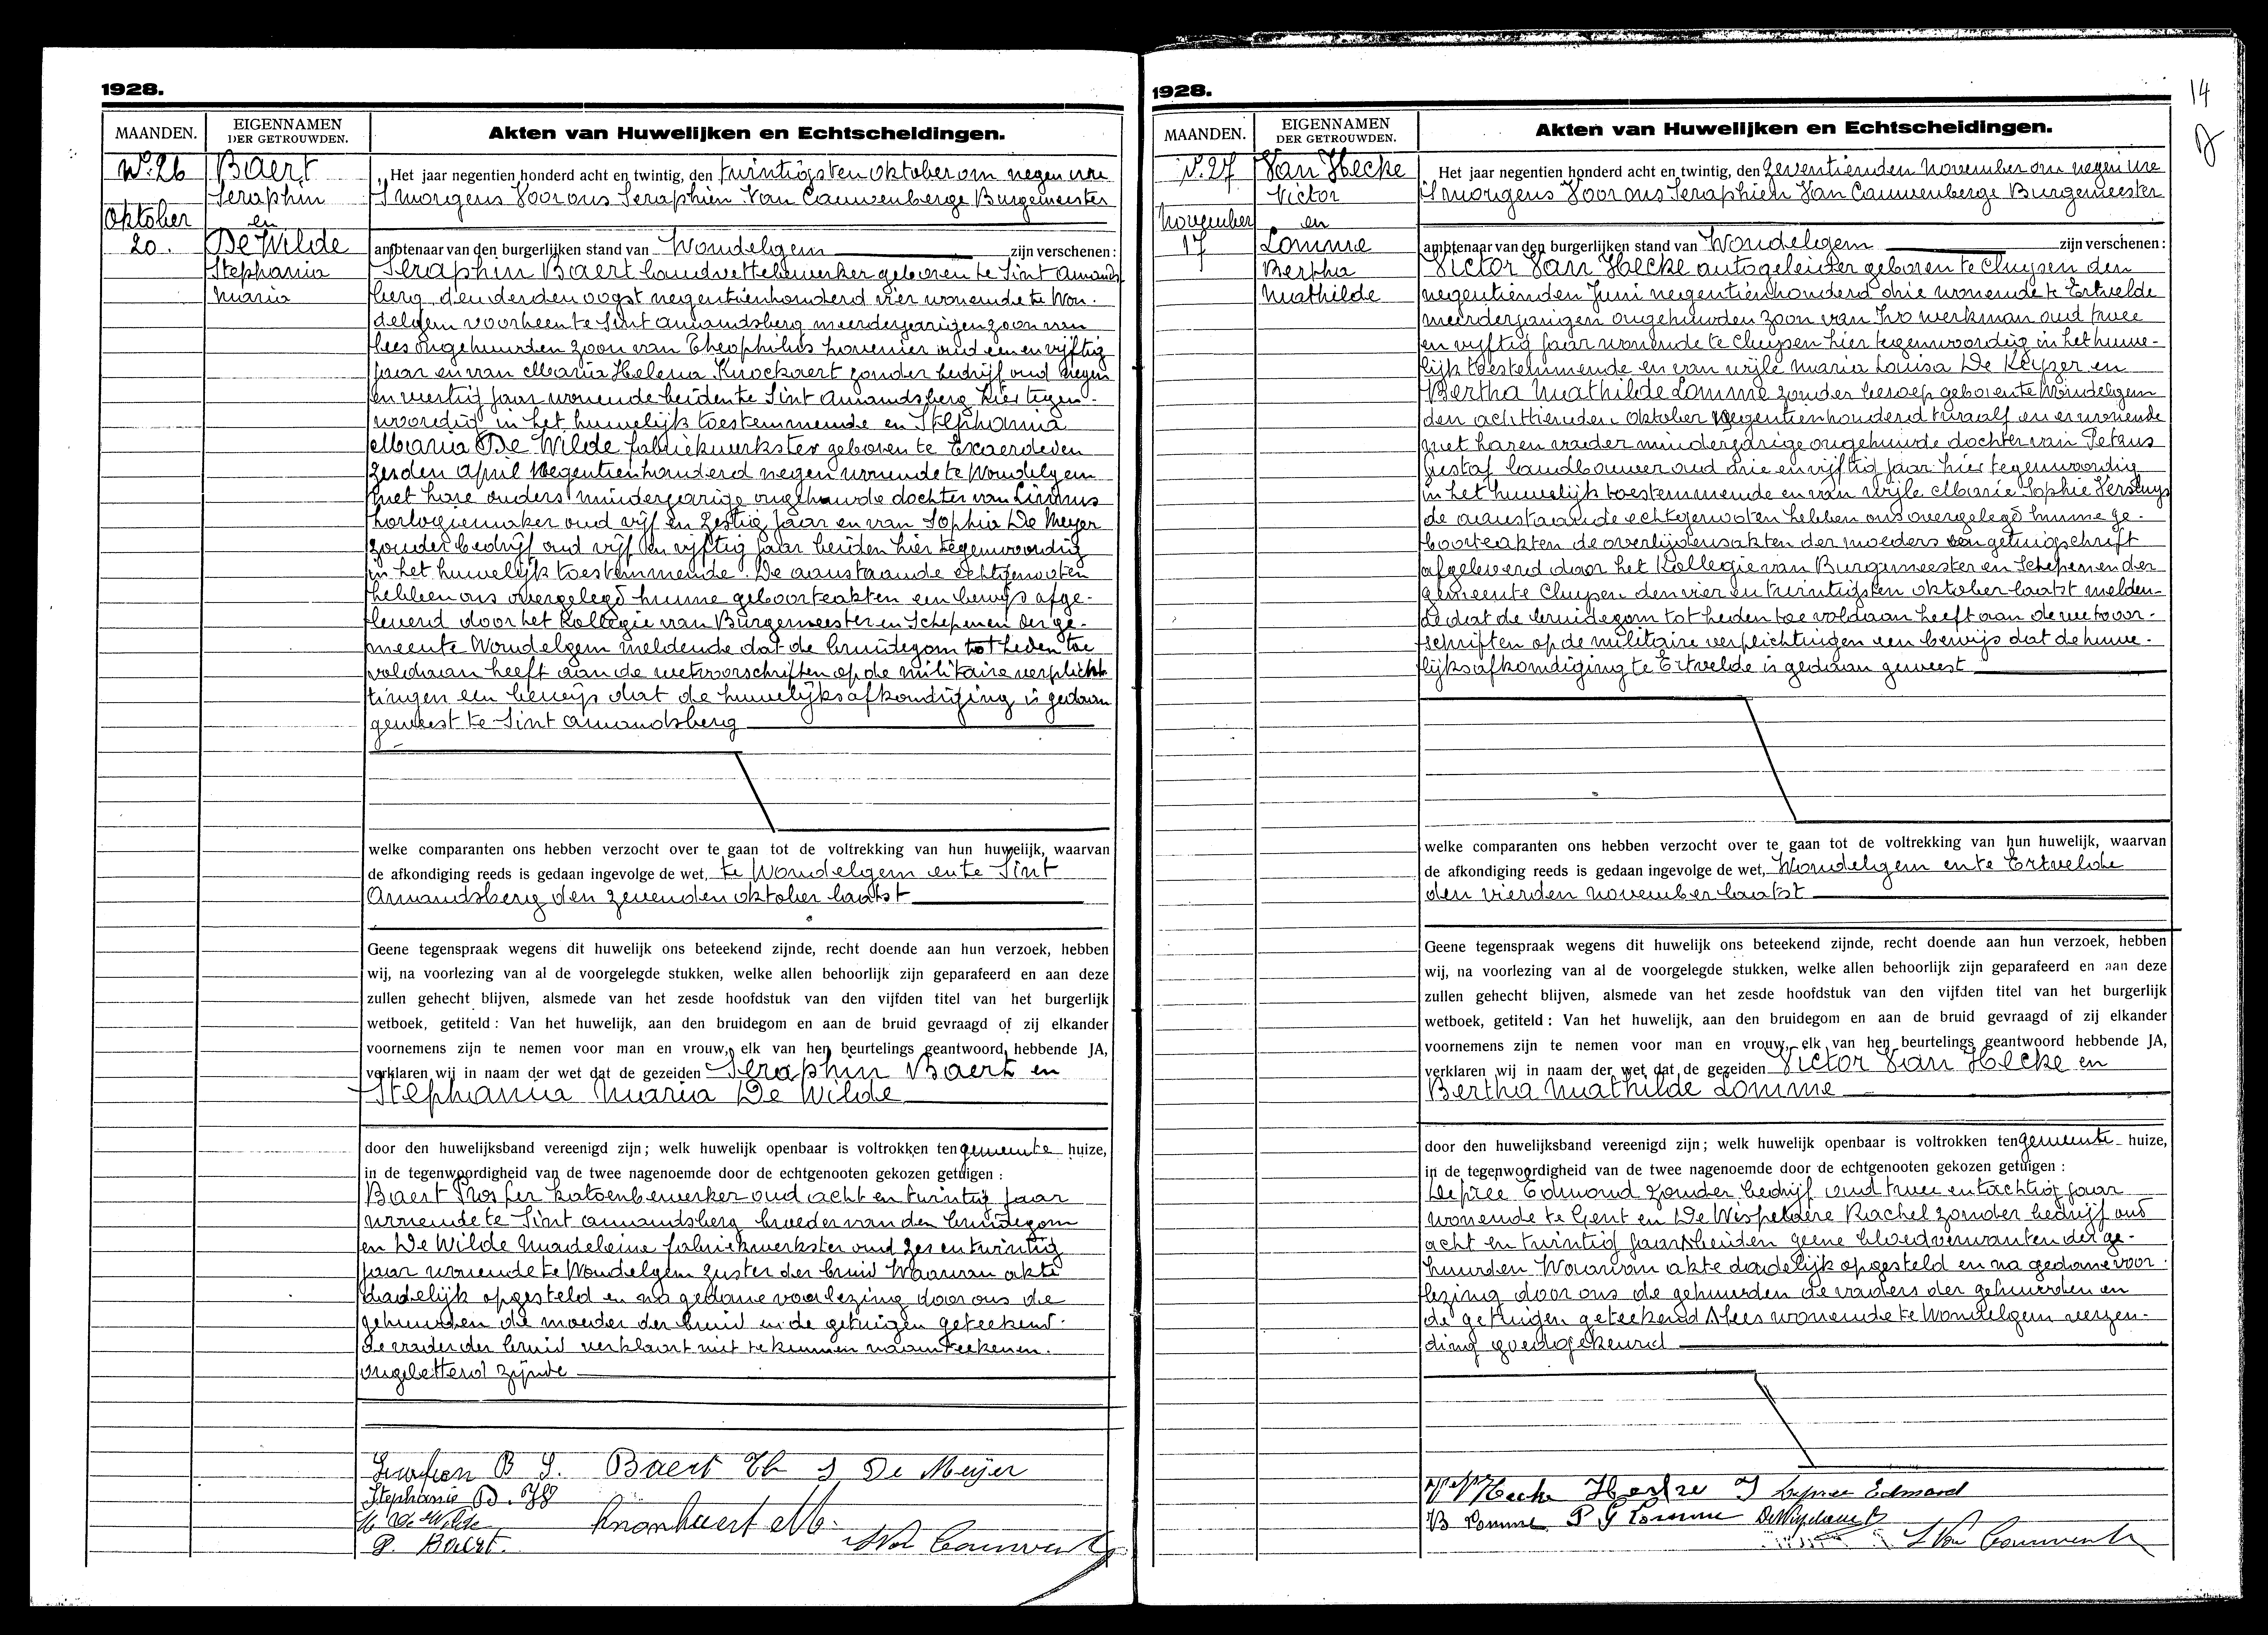 1928.
MAANDEN.
EIGENNAMEN
DER GETROUWDEN.
Akten van Huwelijken en Echtscheidingen.
N.º 26
Oktober
20.
Baert
Seraphin
en
De Wilde
Stephania
Maria
Het jaar negentien honderd acht en twintig, den twintigsten oktober om negen ure
's morgens Voor ons Seraphien Van Cauwenberge Burgemeester
ambtenaar van den burgerlijken stand van Wondelgem zijn verschenen:
Seraphin Baert handvettebewerker geboren te Sint Amands
berg den derden oogst negentienhonderd vier wonende te Won-
delgem voorheen te Sint Amandsberg meerderjarigen zoon van
lees ongehuwden zoon van Theophilus hovenier oud een en vijftig
jaar en van Maria Helena Knockaert zonder bedrijf oud negen
en veertig jaar wonende beiden te Sint Amandsberg hier tegen-
woordig in het huwelijk toestemmende en Stephania
Maria De Wilde fabriekwerkster geboren te Exaerde den
zesden April negentienhonderd negen wonende te Wondelgem
met hare ouders minderjarige ongehuwde dochter van Livinus
horlogiemaker oud vijf en zestig jaar en van Sophia De Meyer
zonder bedrijf oud vijf en vijftig jaar beiden hier tegenwoordig
in het huwelijk toestemmende. De aanstaande echtgenooten
hebben ons overgelegd hunne geboorteakten een bewijs afge-
leverd door het Kollegie van Burgemeester en Schepenen der ge-
meente Wondelgem meldende dat de bruidegom tot heden toe
voldaan heeft aan de wetvoorschriften op de militaire verplich-
tingen een bewijs dat de huwelijksafkondiging is gedaan
geweest te Sint Amandsberg
welke comparanten ons hebben verzocht over te gaan tot de voltrekking van hun huwelijk, waarvan
de afkondiging reeds is gedaan ingevolge de wet, te Wondelgem en te Sint
Amandsberg den zevenden oktober laatst
Geene tegenspraak wegens dit huwelijk ons beteekend zijnde, recht doende aan hun verzoek, hebben
wij, na voorlezing van al de voorgelegde stukken, welke allen behoorlijk zijn geparafeerd en aan deze
zullen gehecht blijven, alsmede van het zesde hoofdstuk van den vijfden titel van het burgerlijk
wetboek, getiteld: Van het huwelijk, aan den bruidegom en aan de bruid gevraagd of zij elkander
voornemens zijn te nemen voor man en vrouw, elk van hen beurtelings geantwoord hebbende JA,
verklaren wij in naam der wet dat de gezeiden Seraphin Baert en
Stephania Maria De Wilde
door den huwelijksband vereenigd zijn; welk huwelijk openbaar is voltrokken ten gemeente huize,
in de tegenwoordigheid van de twee nagenoemde door de echtgenooten gekozen getuigen:
Baert Prosper katoenbewerker oud acht en twintig jaar
wonende te Sint Amandsberg broeder van den bruidegom
en De Wilde Madeleine fabriekwerkster oud zes en twintig
jaar wonende te Wondelgem zuster der bruid Waarvan akte
dadelijk opgesteld en na gedane voorlezing door ons de
gehuwden de moeder der bruid en de getuigen geteekend.
de vader der bruid verklaart niet te kunnen naamteekenen.
ongeletterd zijnde
Baert Th S De Meijer
Stephanie D. W
M De Wilde
P. Baert.
1928.
14
MAANDEN.
EIGENNAMEN
DER GETROUWDEN.
Akten van Huwelijken en Echtscheidingen.
N. 27
November
17
Van Hecke
Victor
en
Lomme
Bertha
Mathilde
Het jaar negentien honderd acht en twintig, den zeventienden November om negen ure
's morgens Voor ons Seraphien Van Cauwenberge Burgemeester
ambtenaar van den burgerlijken stand van Wondelgem zijn verschenen:
Victor Van Hecke autogeleider geboren te Cluysen den
negentienden Juni negentienhonderd drie wonende te Ertvelde
meerderjarigen ongehuwden zoon van Ivo werkman oud twee
en vijftig jaar wonende te Cluysen hier tegenwoordig in het huwe-
lijk toestemmende en van wijle Maria Louisa De Keyzer en
Bertha Mathilde Lomme zonder beroep geboren te Wondelgem
den achttienden Oktober negentienhonderd twaalf en er wonende
met haren vader minderjarige ongehuwde dochter van Petrus
Gustaf landbouwer oud drie en vijftig jaar hier tegenwoordig
in het huwelijk toestemmende en van wijle Marie Sophie Versluys
de aanstaande echtgenooten hebben ons overgelegd hunne ge-
boorteakten de overlijdensakten der moeders een getuigschrift
afgeleverd door het Kollegie van Burgemeester en Schepenen der
gemeente Cluysen den vier en twintigsten oktober laatst melden-
de dat de bruidegom tot heden toe voldaan heeft aan de wetvoor-
schriften op de militaire verplichtingen een bewijs dat de huwe-
lijksafkondiging te Ertvelde is gedaan geweest
welke comparanten ons hebben verzocht over te gaan tot de voltrekking van hun huwelijk, waarvan
de afkondiging reeds is gedaan ingevolge de wet, Wondelgem en te Ertvelde
den vierden november laatst
Geene tegenspraak wegens dit huwelijk ons beteekend zijnde, recht doende aan hun verzoek, hebben
wij, na voorlezing van al de voorgelegde stukken, welke allen behoorlijk zijn geparafeerd en aan deze
zullen gehecht blijven, alsmede van het zesde hoofdstuk van den vijfden titel van het burgerlijk
wetboek, getiteld: Van het huwelijk, aan den bruidegom en aan de bruid gevraagd of zij elkander
voornemens zijn te nemen voor man en vrouw, elk van hen beurtelings geantwoord hebbende JA,
verklaren wij in naam der wet dat de gezeiden Victor Van Hecke en
Bertha Mathilde Lomme
door den huwelijksband vereenigd zijn; welk huwelijk openbaar is voltrokken ten gemeente huize,
in de tegenwoordigheid van de twee nagenoemde door de echtgenooten gekozen getuigen:
Deprée Edmond zonder bedrijf oud twee en tachtig jaar
wonende te Gent en De Wispelaere Rachel zonder bedrijf oud
acht en twintig jaar beiden geene bloedverwanten der ge-
huwden Waarvan akte dadelijk opgesteld en na gedane voor-
lezing door ons de gehuwden de vaders der gehuwden en
de getuigen geteekend lees wonende te Wondelgem verzen-
ding goedgekeurd
V V Hecke Hecke I Depree Edmond
B Lomme P G Lomme